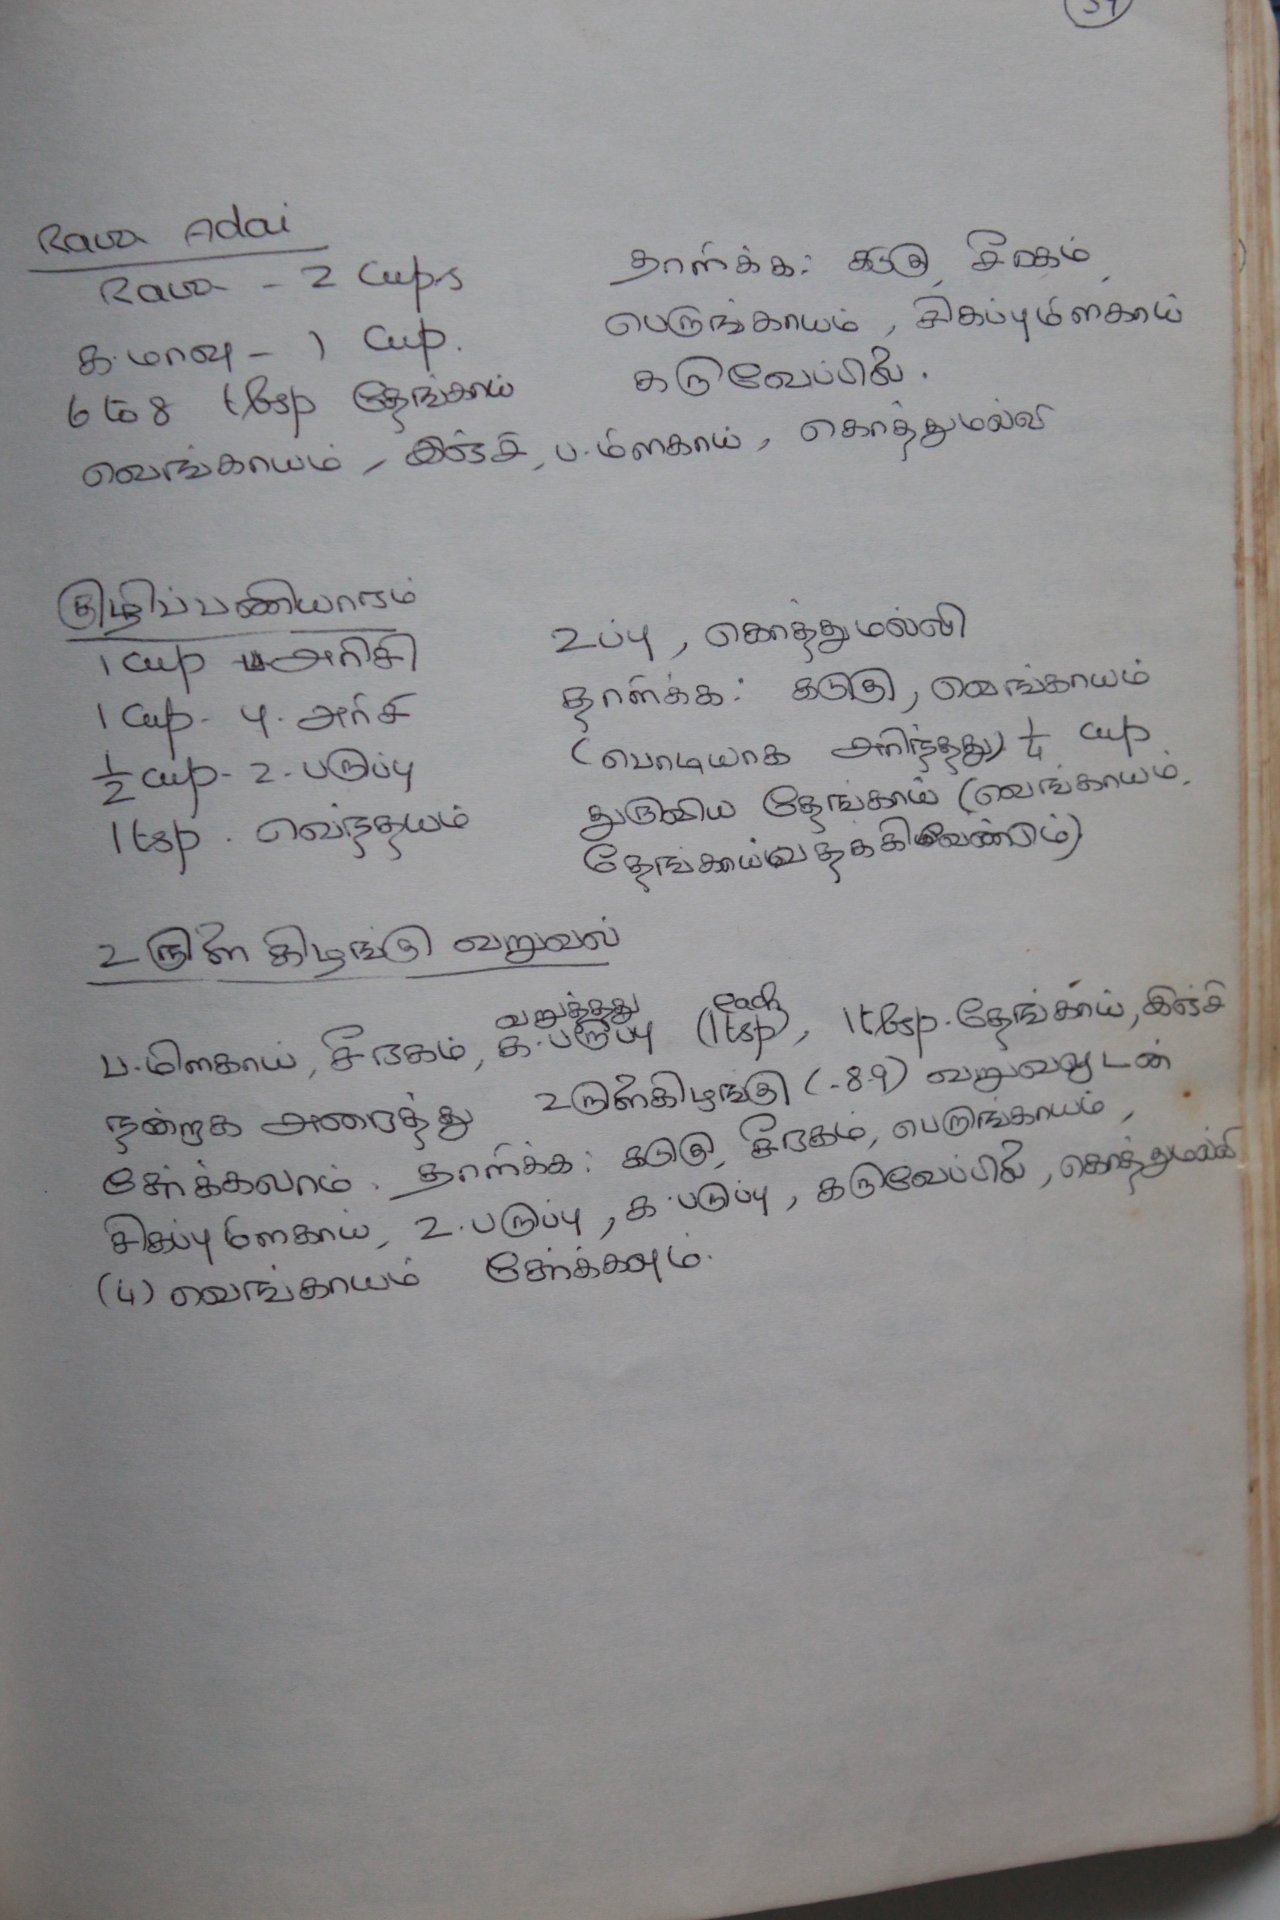 Rava Adai
Rava - 2 Cups
க.மாவு - 1 Cup.
6 to 8 tbsp தேங்காய்
வெங்காயம், இஞ்சி, ப.மிளகாய், கொத்துமல்லி
தாளிக்க: கடுகு, சீரகம்,
பெருங்காயம், சிகப்புமிளகாய்
கருவேப்பிலை.
குழிப்பணியாரம்
1 Cup அரிசி
1 Cup - பு. அரிசி
1/2 cup - உ. பருப்பு
1 tsp. வெந்தயம்
உப்பு, கொத்துமல்லி
தாளிக்க: கடுகு, வெங்காயம்
(பொடியாக அரிந்தது) 1/4 cup
துருவிய தேங்காய் (வெங்காயம்.
தேங்காய் வதக்கி வேண்டும்)
உருளை கிழங்கு வறுவல்
வறுத்தது each
ப.மிளகாய், சீரகம், க.பருப்பு (1 tsp), 1 tbsp. தேங்காய், இஞ்சி
நன்றாக அரைத்து உருளைகிழங்கு (-8-9) வறுவலுடன்
சேர்க்கலாம். தாளிக்க: கடுகு, சீரகம், பெருங்காயம்,
சிகப்பு மிளகாய், உ.பருப்பு, க.பருப்பு, கருவேப்பிலை, கொத்துமல்லி
(4) வெங்காயம் சேர்க்கவும்.